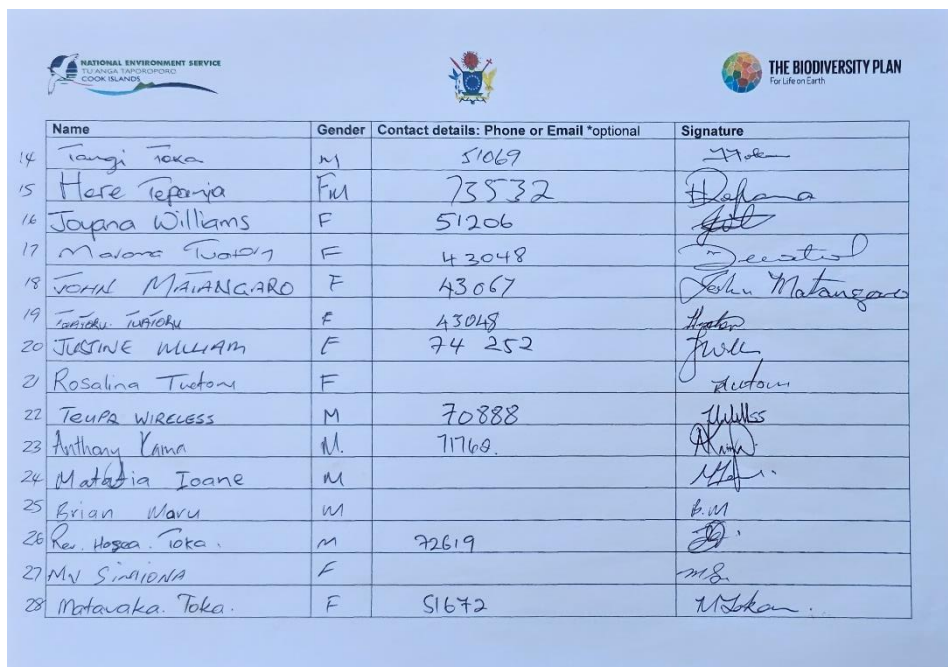 NATIONAL ENVIRONMENT SERVICE
TU'ANGA TAPOROPORO
COOK ISLANDS
THE BIODIVERSITY PLAN
For Life on Earth
Name Gender Contact details: Phone or Email *optional Signature
14 Tangi Toka M 51069
15 Here FM 73532
16 Joyana Williams F 51206
17 F 43048
18 JOHN MATANGARO F 43067 John Matangaro
19 TUATORU F 43048
20 JUSTINE WILLIAM F 74 252
21 Rosalina F
22 TEUPA WIRELESS M 70888
23 Anthony M. 71760.
24 Matatia Ioane M
25 Brian Maru M B.M
26 Rev. Hosea. Toka. M 72619
27 SIMIONA F
28 Matavaka. Toka. F 51672